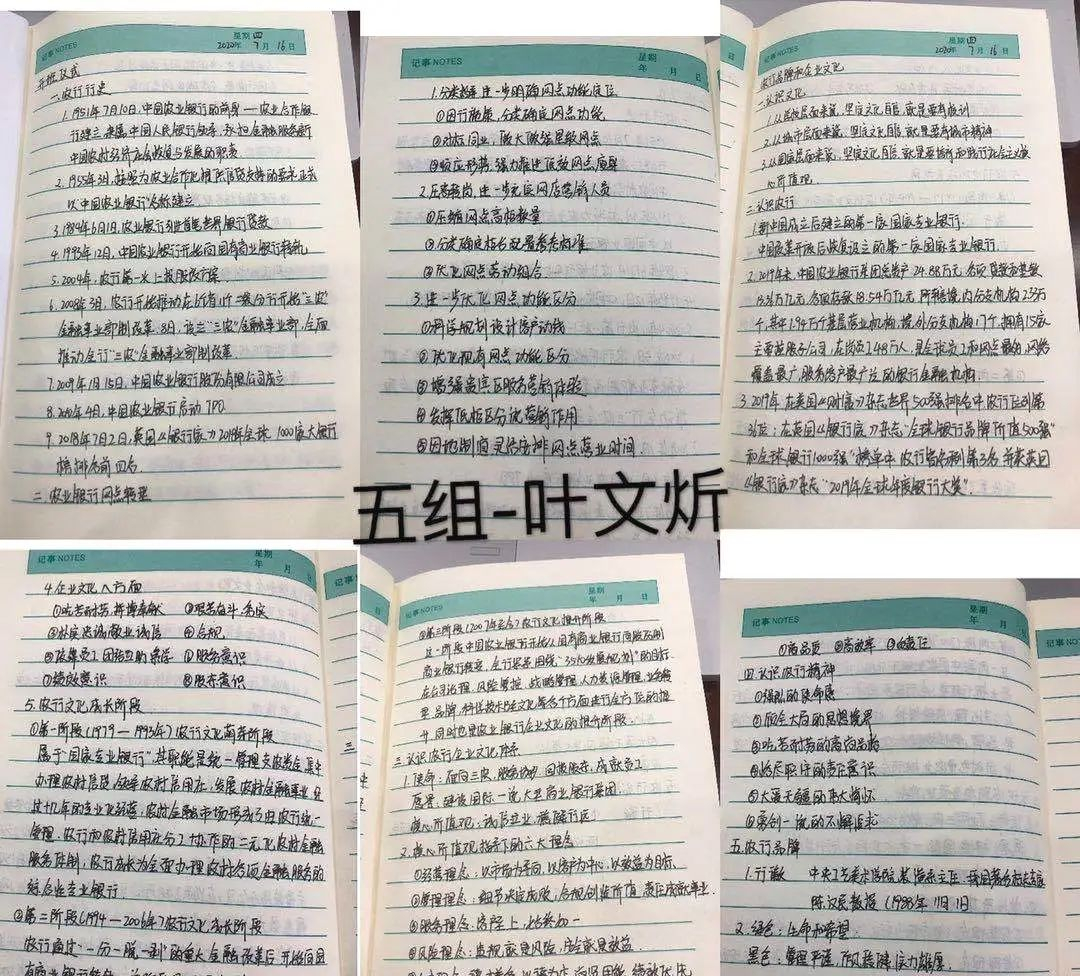 记事 NOTES
星期四
2020年 7月 16日
开班仪式
一.农行行史
1.1951年7月10日,中国农业银行的前身——农业合作银
行建立,隶属中国人民银行领导,承担金融服务新
中国农村经济社会恢复与发展的职责.
2.1955年3月,
以"中国农业银行"名称建立
4.1993年12月,中国农业银行开始向国有商业银行转轨
5.2004年,农行第一次上报股改方案
6.2008年3月,农行开始推动在6个省11个二级分行开始"三农"
金融事业部制改革,8月,设立"三农"金融事业部,全面
推动全行"三农"金融事业部制改革.
7.2009年1月15日,中国农业银行股份有限公司成立
8.2010年4月,中国农业银行启动IPO
9.2018年7月2日,英国《银行家》2018年全球1000家大银行
榜排名前四名.
二.农业银行网点转型
记事 NOTES
星期
年 月 日
1.分类推进,进一步明确网点功能定位
①因行施策,分类确定网点功能
②对标同业,做大做强星级网点
③顺应形势,强力推进低效网点
2.压高转岗,进一步充实网点营销人员
①压缩网点高柜数量
②分类确定柜台配置参考标准
③优化网点劳动组合
3.进一步优化网点功能区分
①科学规划设计客户动线
②优化现有网点功能区分
③增强贵宾区服务营销体验
④发挥低柜区分流营销作用
⑤因地制宜灵活安排网点营业时间.
记事 NOTES
星期四
2020年 7月 16日
农行品牌和企业文化
一.认识文化
2.从城市层面来说,坚定文化自信就是要有城市精神
3.从国家层面来说,坚定文化自信就是要培育和践行社会主义核
心价值观.
二.认识农行
1.新中国成立后建立的第一家国家专业银行.
中国改革开放后恢复设立的第一家国家专业银行
2.2019年末,中国农业银行集团总资产24.88万亿元,各项贷款和垫款
13.36万亿元,各项存款18.54万亿元,境内分支机构2.3万
个,其中1.94万个基层营业机构,境外分支机构17个,拥有15家
主要控股子公司,在岗员工48万人,是全球员工和网点最多,网络
覆盖最广,服务客户最广泛的银行金融机构
3.2019年,在美国《财富》杂志世界500强排名中,农行位列第
36位;在英国《银行家》杂志"全球银行品牌价值500强"
和"全球银行1000强"榜单中,农行皆名列第3名,并获英国
《银行家》杂志"2019年全球年度银行大奖".
五组-叶文炘
记事 NOTES
星期
年 月 日
4.企业文化八方面
①吃苦耐劳,拼搏奉献 ②艰苦奋斗,务实
③朴实忠诚敬业诚信 ④合规.
⑤凝集员工团结互助亲 ⑥服务意识
⑦绩效意识 ⑧服务意识
5.农行文化成长阶段
①第一阶段(1979—1993年)农行文化萌芽阶段
属于"国家专业银行",其职能是统一管理支农资金,集中
办理农村信贷,领导农村信用社,发展农村金融事业,经
过十几年的专业化经营,农村金融市场形成了由农行统一
管理,农行和农村信用社分工协作的二元化农村金融
服务体制,农行成长为全面办理农村各项金融服务的
综合性专业银行
②第二阶段(1994—2006年)农行文化成长阶段
农行通过"一分一脱一剥"的重大金融改革后,开始向国
有商业银行转轨
记事 NOTES
星期
年 月 日
③第三阶段(2007年至今)农行文化提升阶段
这一阶段中国农业银行开始从国有商业银行向股份制
商业银行转变,全行紧紧围绕"3510发展规划"的目标
在公司治理,风险管控,战略管理,人力资源管理,业务发
展,品牌,科技技术和企业文化等各个方面进行全方位的提
升,同时也是农业银行企业文化的提升阶段.
三.认识农行企业文化体系
1.使命:面向三农,服务城乡,回报股东,成就员工
愿景:建设国际一流大型商业银行集团
核心价值观:诚信立业,稳健行远
2.核心价值观指导下的六大理念
①经营理念:以市场为导向,以客户为中心,以效益为目标.
②管理理念:细节决定成败,合规创造价值,责任成就事业.
③服务理念:客户至上,始终如一
④风险理念:违规就是风险,安全就是效益
记事 NOTES
星期
年 月 日
①高品质 ②高效率 ③
四.认识农行精神
①强烈的使命感
②顾全大局的思想境界
③吃苦耐劳的高尚品格
④恪尽职守的责任意识
⑤大爱无疆的博大情怀
⑥勇创一流的不懈追求
五.农行品牌
1.行徽
陈汉民教授(1988年11月1日
2.绿色:生命和希望.